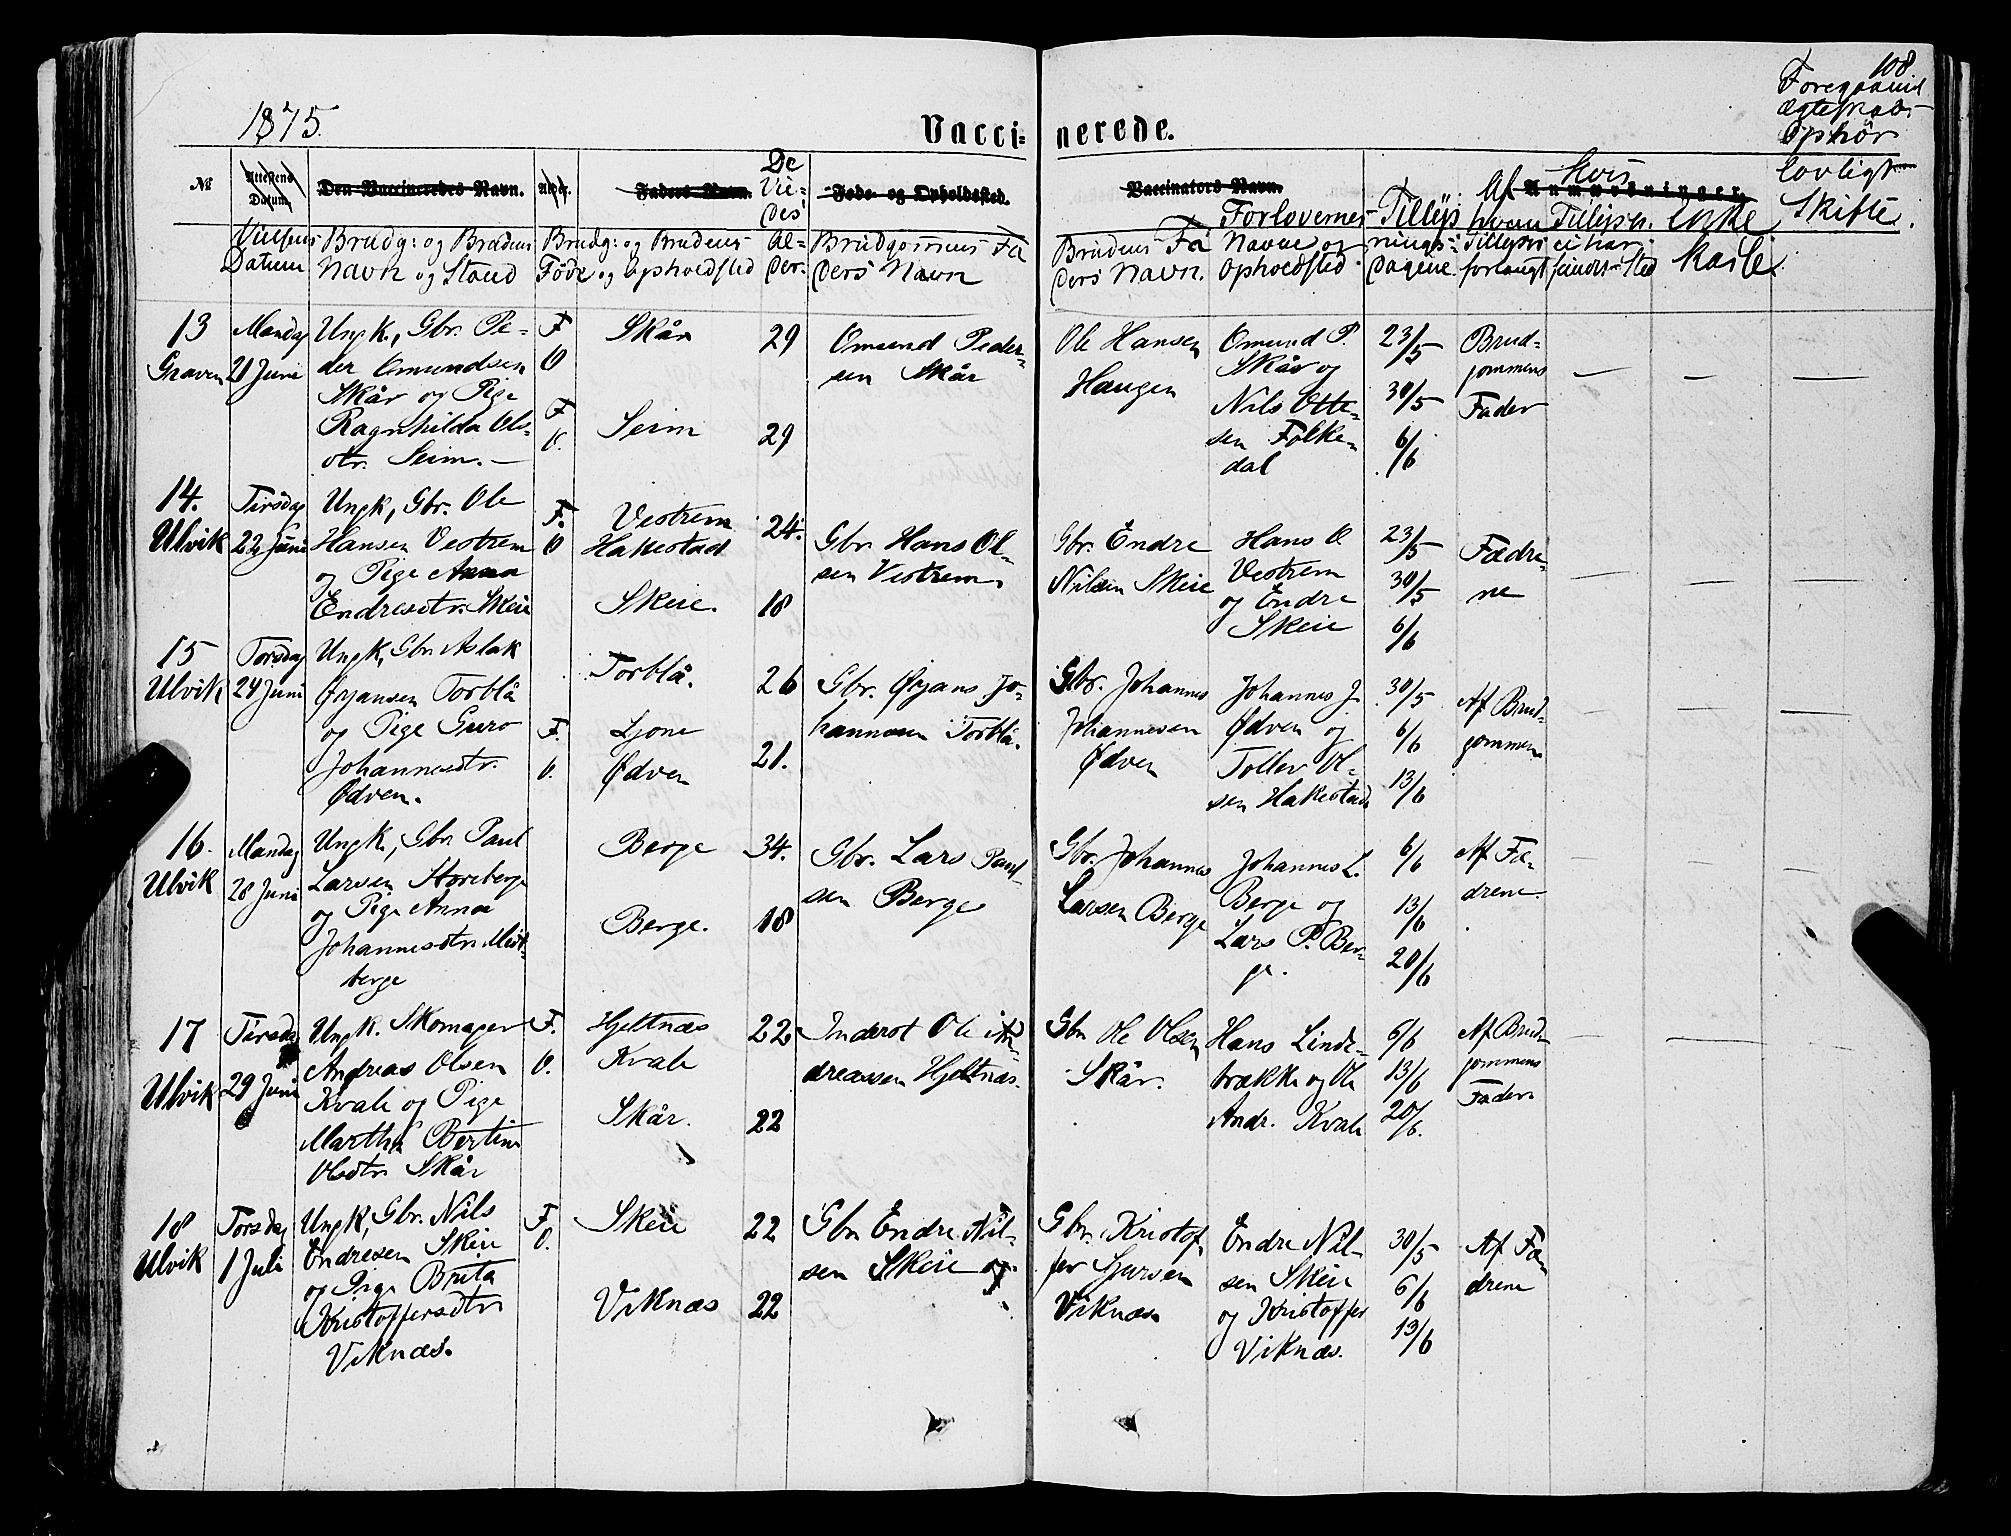 108
Foregaaend
ægteskabs
Ophör
lovligt
Skifte
1875.
Vacci= nerede.
№
Attestens Datum
Den Vaccineredes Navn.
Alder.
Faders Navn.
Føde- og Opholdssted.
Vaccinators Navn.
Anmærkninger.
Vielsens
Datum
Brudg: og Brudens
Navn og Stand
Brudg: og Brudens
Föde og Opholdsted
De
Vie-
des
Al-
der.
Brudgommens Fa
ders Navn
Brudens Fa
ders Navn.
Forlovernes
Navne og
Opholdsted.
Tillys
nings-
dagene.
Af
hvem
Tillysn
forlangt
Hvis
Tillysn.
ei har
Sted
Enke
Kasse
13
Graven
Mandag
21 Juni
Ungk., Gbr. Pe-
der Omundsen
Skår og Pige
Ragnhilda Ols-
dtr. Seim.
F
O
F
O.
Skår
Seim
29
29
Omund Peder-
sen Skår
Ole Hansen
Haugen
Omund P.
Skår og
Nils Otte-
sen Folke-
dal
23/5
30/5
6/6
Brud-
gommens
Fader
14.
Ulvik
Tirsdag
22 Juni
Ungk, Gbr. Ole
Hansen Vestrem
og Pige Anna
Endresdtr. Skeie
F.
O
Vestrem
Hakestad
Skeie.
24.
18
Gbr. Hans Ol-
sen Vestrem.
Gbr. Endre
Nilsen Skeie
Hans O.
Vestrem
og Endre
Skeie
23/5
30/5
6/6
Fædre-
ne
15
Ulvik
Torsdag
24 Juni
Ungk, Gbr. Aslak
Ørjansen Torblå
og Pige Guro
Johannesdtr.
Ødven.
F.
O.
Torblå.
Ljone
Ødven
26
21.
Gbr. Ørjans Jo-
hannesen Torblå.
Gbr. Johannes
Johannesen
Ødven
Johannes J.
Ødven og
Tollev Ol-
sen Hakestad
30/5
6/6
13/6
Af Brud-
gommen
16.
Ulvik
Mandag
28 Juni
Ungk., Gbr. Paul
Larsen Storeberge
og Pige Anna
Johannesdtr. Midt-
berge
Berge
Berge.
34.
18
Gbr. Lars Paul-
sen Berge
Gbr. Johannes
Larsen Berge
Johannes L.
Berge og
Lars P. Ber-
ge.
6/6
13/6
20/6
Af Fæ-
drene
17
Ulvik
Tirsdag
29 Juni
Ungk. Skomager
Andreas Olsen
Kvale og Pige
Martha Bertine
Olsdtr. Skår
F.
O.
Hjeltnæs
Kvale
Skår.
22
22
Inderst Ole An-
dreassen Hjeltnæs.
Gbr. Ole Olsen
Skår.
Hans Linde-
brække og Ole
Andr. Kvale
6/6
13/6
20/6.
Af Brud-
gommens
Fader
18
Ulvik
Torsdag
1 Juli
Ungk, Gbr. Nils
Endresen Skeie
og Pige Brita
Kristoffersdtr.
Viknæs.
F.
O.
Skeie
Viknæs
22
22
Gbr. Endre Nil-
sen Skeie og
Gbr. Kristof-
fer Sjursen
Viknæs
Endre Nil-
sen Skeie
og Kristoffer
Viknæs.
30/5
6/6
13/6
Af Fæ-
drene